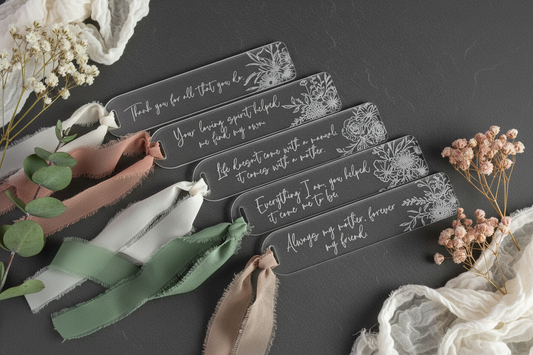 Thank you for all that you do
Your loving spirit helped
me find my own
Life doesn't come with a manual
it comes with a mother
Everything I am, you helped
it come me to be
Always my mother, forever
my friend